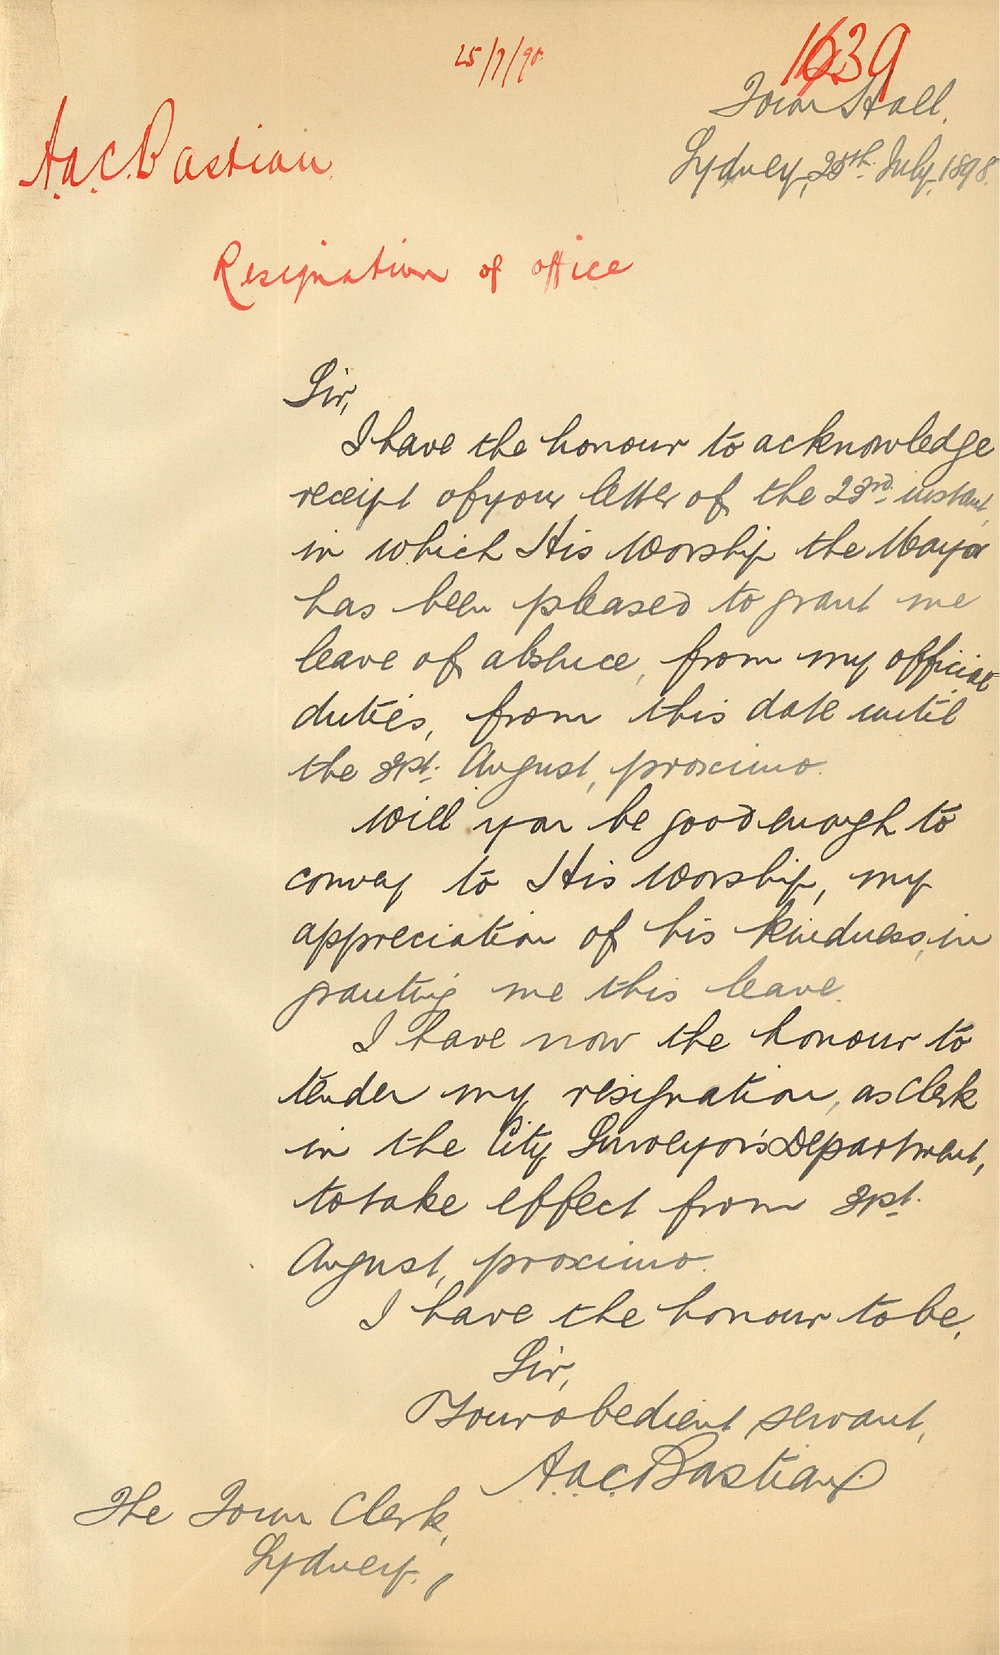 25/7/98
1639
Town Hall,
Sydney, 25th. July, 1898.
A.A.C. Bastian
Resignation of office
Sir,
I have the honour to acknowledge
receipt of your letter of the 23rd. instant,
in which His Worship the Mayor
has been pleased to grant me
leave of absence, from my official
duties, from this date until
the 31st. August, proximo.
Will you be good enough to
convey to His Worship, my
appreciation of his kindness, in
granting me this leave.
I have now the honour to
tender my resignation, as Clerk
in the City Surveyor's Department,
to take effect from 31st.
August, proximo.
I have the honour to be,
Sir,
Your obedient servant,
A.A.C. Bastian
The Town Clerk,
Sydney.